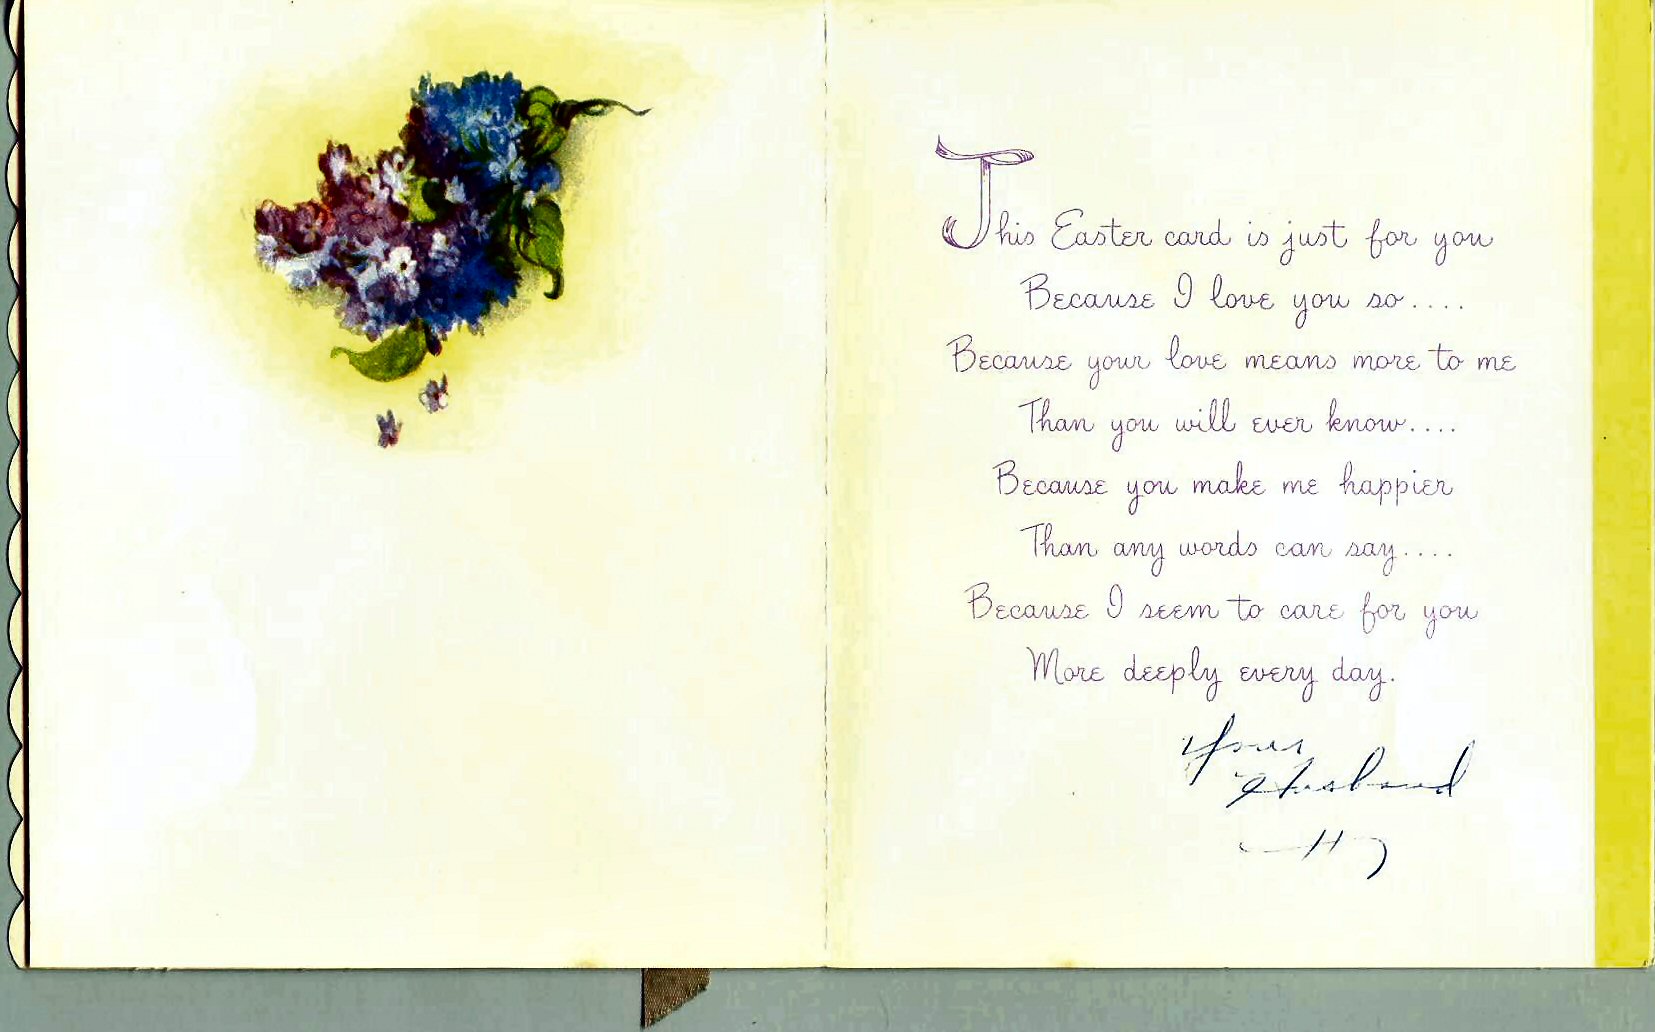 This Easter card is just for you
Because I love you so....
Because your love means more to me
Than you will ever know....
Because you make me happier
Than any words can say....
Because I seem to care for you
More deeply every day.
Your
Husband